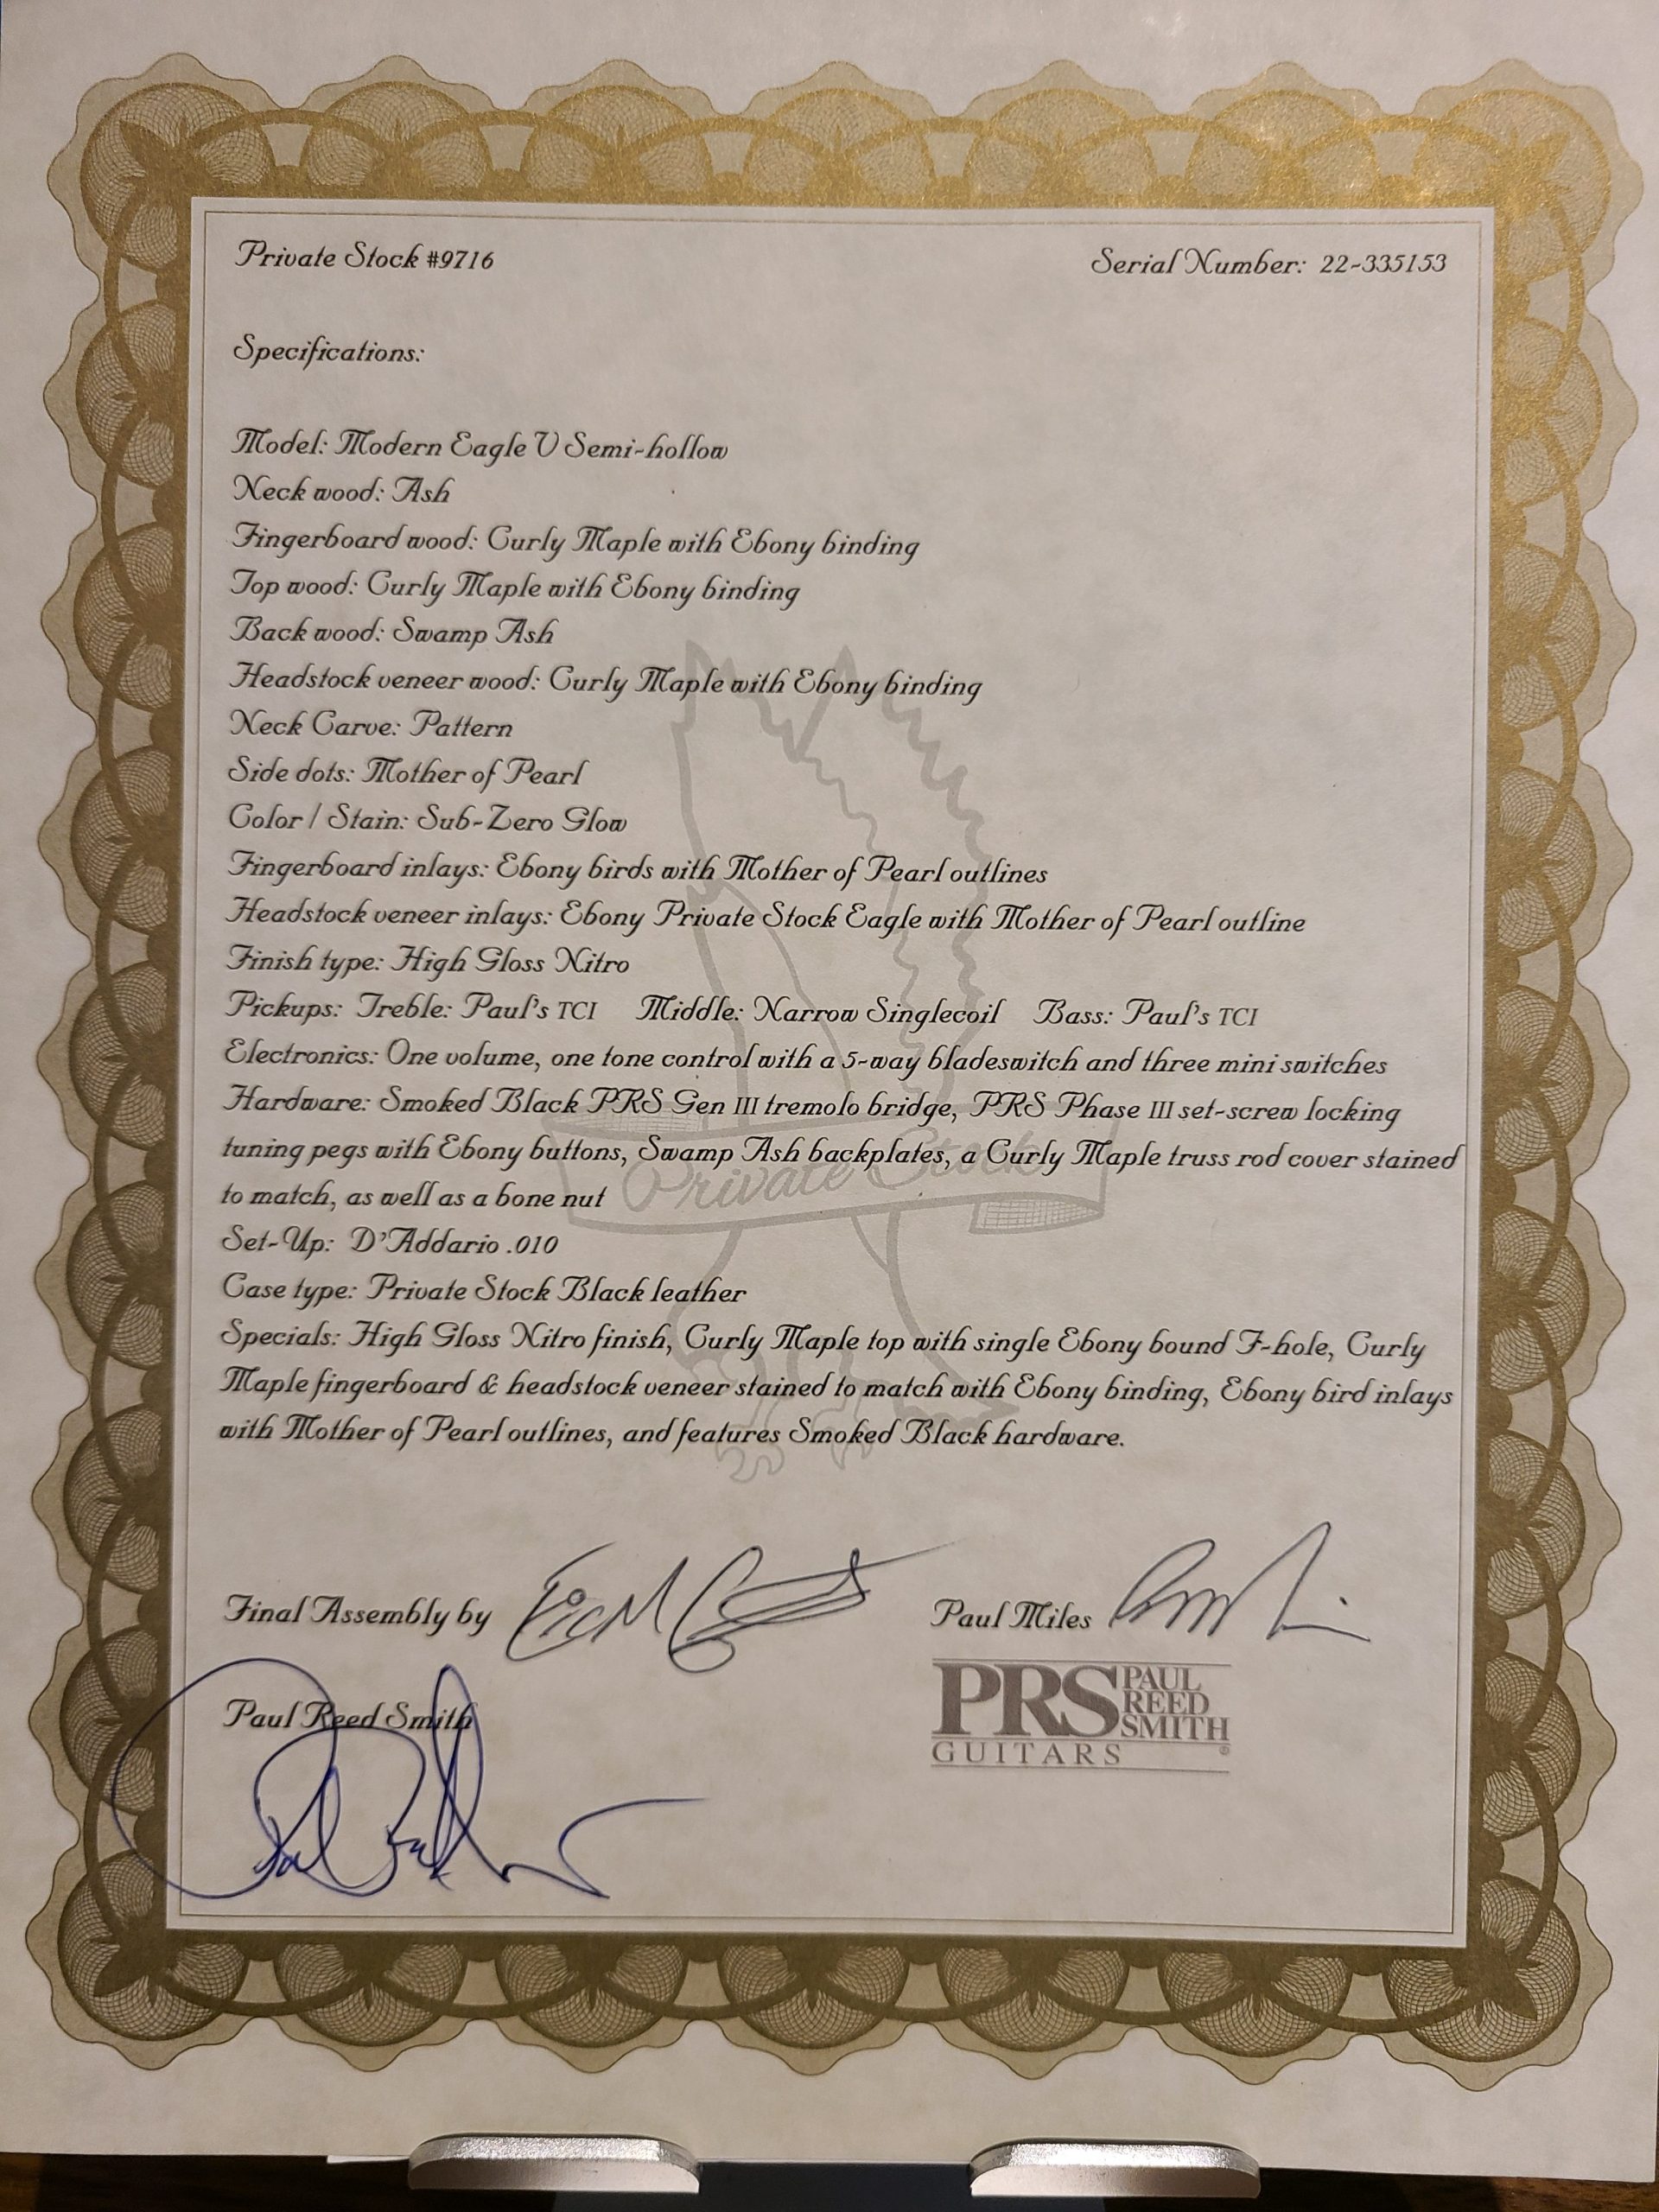 Private Stock #9716
Serial Number: 22-335153
Specifications:
Model: Modern Eagle V Semi-hollow
Neck wood: Ash
Fingerboard wood: Curly Maple with Ebony binding
Top wood: Curly Maple with Ebony binding
Back wood: Swamp Ash
Headstock veneer wood: Curly Maple with Ebony binding
Neck Carve: Pattern
Side dots: Mother of Pearl
Color / Stain: Sub-Zero Glow
Fingerboard inlays: Ebony birds with Mother of Pearl outlines
Headstock veneer inlays: Ebony Private Stock Eagle with Mother of Pearl outline
Finish type: High Gloss Nitro
Pickups: Treble: Paul's TCI Middle: Narrow Singlecoil Bass: Paul's TCI
Electronics: One volume, one tone control with a 5-way bladeswitch and three mini switches
Hardware: Smoked Black PRS Gen III tremolo bridge, PRS Phase III set-screw locking
tuning pegs with Ebony buttons, Swamp Ash backplates, a Curly Maple truss rod cover stained
Private Stock
to match, as well as a bone nut
Set-Up: D'Addario .010
Case type: Private Stock Black leather
Specials: High Gloss Nitro finish, Curly Maple top with single Ebony bound F-hole, Curly
Maple fingerboard & headstock veneer stained to match with Ebony binding, Ebony bird inlays
with Mother of Pearl outlines, and features Smoked Black hardware.
Final Assembly by
Paul Miles
Paul Reed Smith
PRS PAUL
REED
SMITH
GUITARS ®